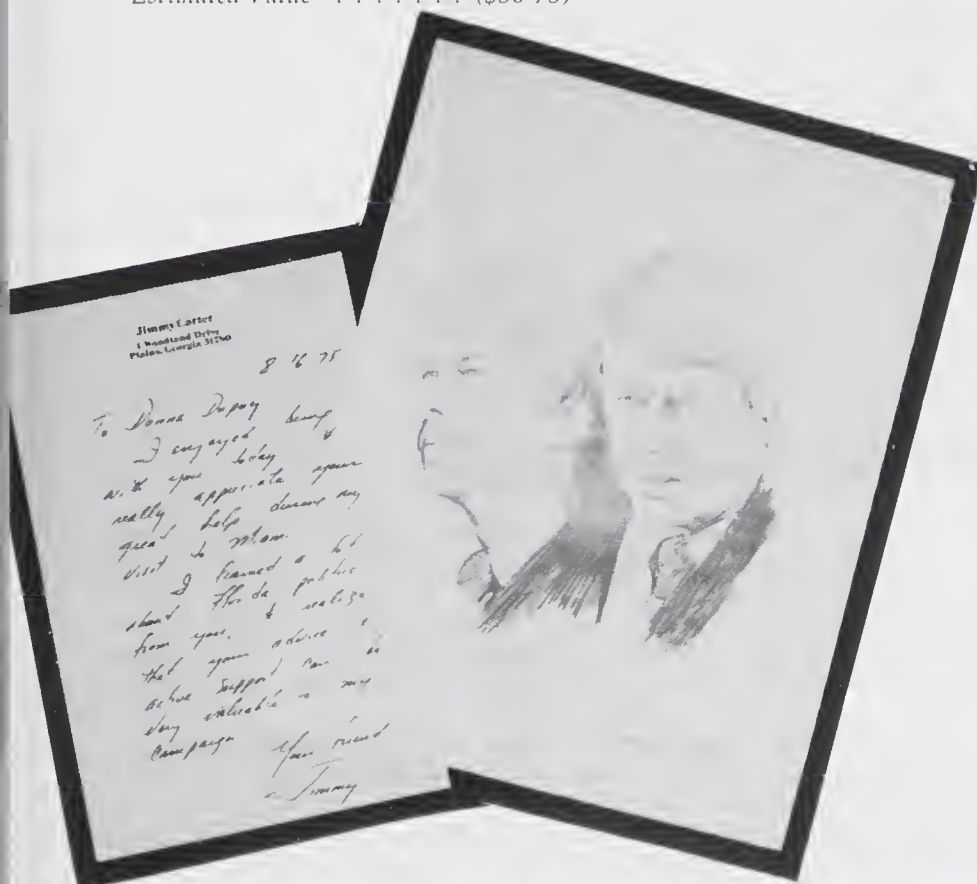 Estimated Value . . . . . . . ($50-75)
Jimmy Carter
1 Woodland Drive
Plains, Georgia 31780
8 16 75
To Donna Dupuy
I enjoyed being
with you today &
really appreciate your
great help during my
visit to Miami.
I learned a lot
about Florida politics
from you, & realize
that your advice &
active support can be
very valuable in my
campaign
Your friend
Jimmy